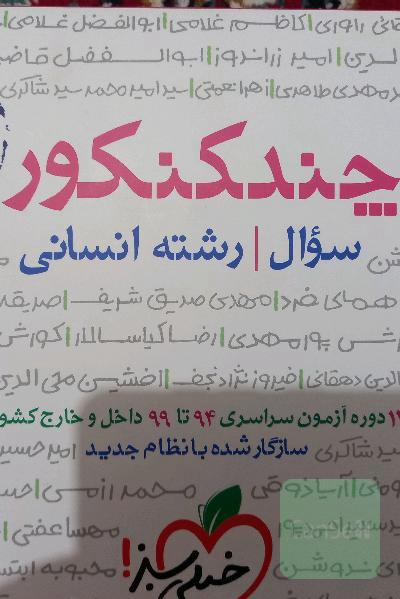 راوری | کاظم غلامی | ابوالفضل غلامی
الدین | امیر زراندوز | ابوالفضل قاضی
مهدی طاهری | زهرا نعمتی | سید امیر محمد سید شاکری
چند کنکور
سؤال | رشته انسانی
همای فرد | مهدی صدیق شریف | صدیقه
پورمهدی | رضا کیاسالار | کورش
الدین دهقانی | فیروز نژادنجف | افشین محی الدین
۱۲ دوره آزمون سراسری ۹۴ تا ۹۹ داخل و خارج کشور
سازگار شده با نظام جدید
شاکری امیرحسین
آریا ذوقی محمد رزمی
مهسا عفتی
خیلی سبز!
محبوبه